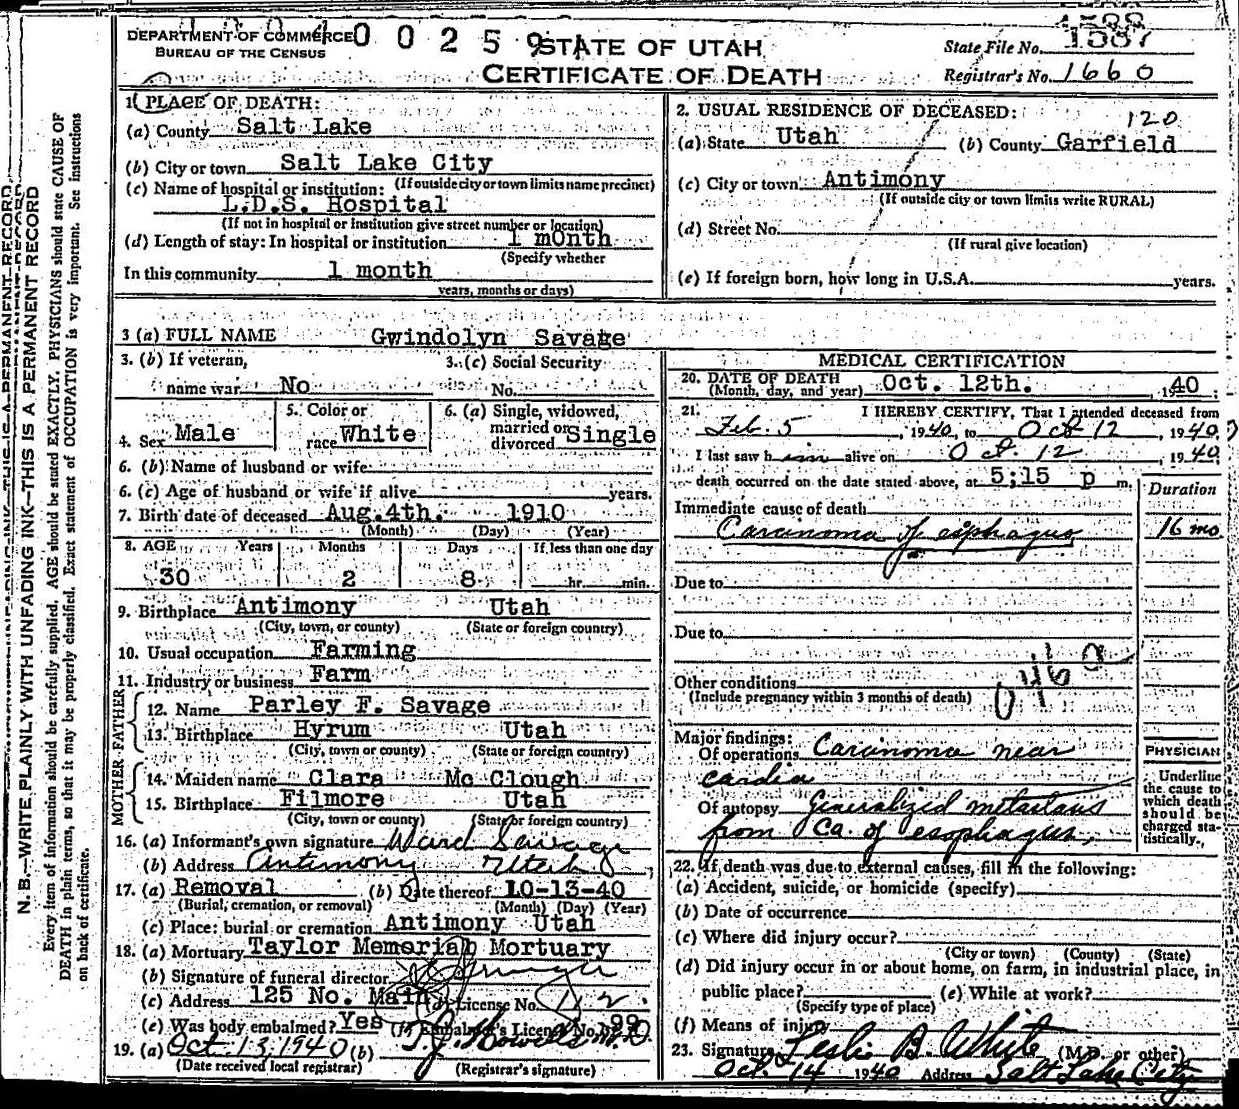 DEPARTMENT OF COMMERCE
BUREAU OF THE CENSUS
0 0 2 5 9
STATE OF UTAH
CERTIFICATE OF DEATH
State File No. 1587
Registrar's No. 1660
1. PLACE OF DEATH:
(a) County Salt Lake
(b) City or town Salt Lake City
(If outside city or town limits name precinct)
(c) Name of hospital or institution:
L.D.S. Hospital
(If not in hospital or institution give street number or location)
(d) Length of stay: In hospital or institution 1 month
(Specify whether
In this community 1 month
years, months or days)
2. USUAL RESIDENCE OF DECEASED:
120
(a) State Utah (b) County Garfield
(c) City or town Antimony
(If outside city or town limits write RURAL)
(d) Street No.
(If rural give location)
(e) If foreign born, how long in U.S.A. years.
3 (a) FULL NAME Gwindolyn Savage
3. (b) If veteran,
name war No
3. (c) Social Security
No.
4. Sex Male
5. Color or
race White
6. (a) Single, widowed,
married or
divorced Single
6. (b) Name of husband or wife
6. (c) Age of husband or wife if alive years.
7. Birth date of deceased Aug. 4th. 1910
(Month) (Day) (Year)
8. AGE Years Months Days If less than one day
30 2 8 hr. min.
9. Birthplace Antimony Utah
(City, town, or county) (State or foreign country)
10. Usual occupation Farming
11. Industry or business Farm
FATHER
12. Name Parley F. Savage
13. Birthplace Hyrum Utah
(City, town or county) (State or foreign country)
MOTHER
14. Maiden name Clara Mc Clough
15. Birthplace Filmore Utah
(City, town or county) (State or foreign country)
16. (a) Informant's own signature Ward Savage
(b) Address Antimony Utah
17. (a) Removal (b) Date thereof 10-13-40
(Burial, cremation, or removal) (Month) (Day) (Year)
(c) Place: burial or cremation Antimony Utah
18. (a) Mortuary Taylor Memorial Mortuary
(b) Signature of funeral director
(c) Address 125 No. Main (d) License No. 112
(e) Was body embalmed? Yes (f) Embalmer's License No. 99
19. (a) Oct. 13, 1940 (b) T.J. Howells M.D.
(Date received local registrar) (Registrar's signature)
MEDICAL CERTIFICATION
20. DATE OF DEATH Oct. 12th. 1940
(Month, day, and year)
21. I HEREBY CERTIFY, That I attended deceased from
Feb. 5, 1940, to Oct 12, 1940
I last saw him alive on Oct. 12, 1940
death occurred on the date stated above, at 5;15 p m.
Duration
Immediate cause of death
Carcinoma of esphagus 16 mo
Due to
Due to
Other conditions
(Include pregnancy within 3 months of death)
046 a
Major findings:
Of operations Carcinoma near
cardia
Of autopsy Generalized metastasis
from Ca. of esophagus,
PHYSICIAN
Underline
the cause to
which death
should be
charged sta-
tistically.
22. If death was due to external causes, fill in the following:
(a) Accident, suicide, or homicide (specify)
(b) Date of occurrence
(c) Where did injury occur?
(City or town) (County) (State)
(d) Did injury occur in or about home, on farm, in industrial place, in
public place? (e) While at work?
(Specify type of place)
(f) Means of injury
23. Signature Leslie B. White (M.D. or other)
Oct. 14 1940 Address Salt Lake City
N. B.—WRITE PLAINLY WITH UNFADING INK—THIS IS A PERMANENT RECORD
Every item of information should be carefully supplied. AGE should be stated EXACTLY. PHYSICIANS should state CAUSE OF
DEATH in plain terms, so that it may be properly classified. Exact statement of OCCUPATION is very important. See instructions
on back of certificate.